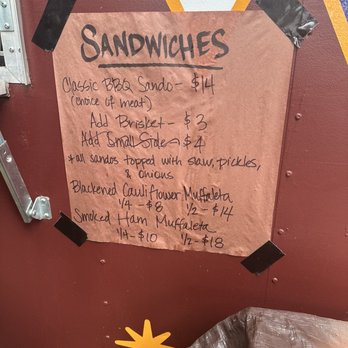 SANDWICHES
Classic BBQ Sando - $14
(choice of meat)
Add Brisket - $3
Add Small Side - $4
* all sandos topped with slaw, pickles,
& onions
Blackened Cauliflower Muffaleta
1/4 - $8 1/2 - $14
Smoked Ham Muffaleta
1/4 - $10 1/2 - $18